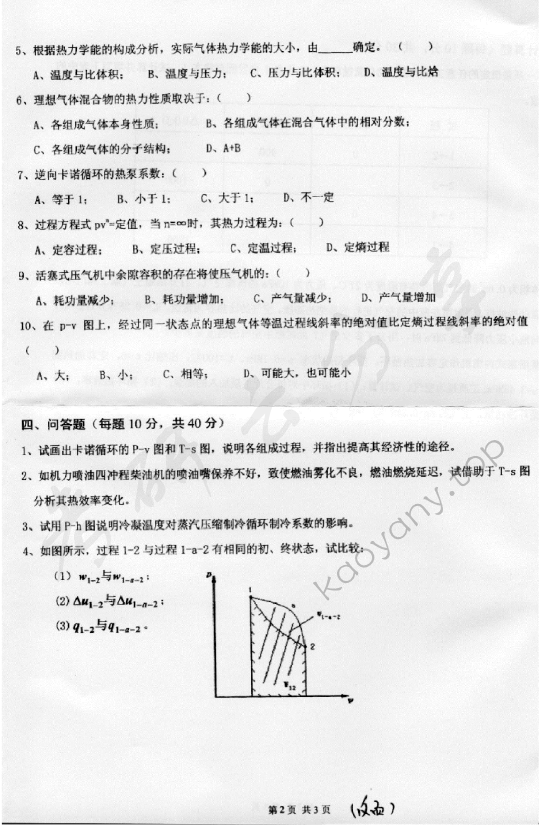 5、根据热力学能的构成分析，实际气体热力学能的大小，由______确定。（　　）
A、温度与比体积；　B、温度与压力；　C、压力与比体积；　D、温度与比焓
6、理想气体混合物的热力性质取决于：（　　）
A、各组成气体本身性质；　　B、各组成气体在混合气体中的相对分数；
C、各组成气体的分子结构；　　D、A+B
7、逆向卡诺循环的热泵系数：（　　）
A、等于 1；　B、小于 1；　C、大于 1；　D、不一定
8、过程方程式 pvⁿ=定值，当 n=∞时，其热力过程为：（　　）
A、定容过程；　B、定压过程；　C、定温过程；　D、定熵过程
9、活塞式压气机中余隙容积的存在将使压气机的：（　　）
A、耗功量减少；　B、耗功量增加；　C、产气量减少；　D、产气量增加
10、在 p-v 图上，经过同一状态点的理想气体等温过程线斜率的绝对值比定熵过程线斜率的绝对值
（　　）
A、大；　B、小；　C、相等；　D、可能大，也可能小
四、问答题（每题 10 分，共 40 分）
1、试画出卡诺循环的 P-v 图和 T-s 图，说明各组成过程，并指出提高其经济性的途径。
2、如机力喷油四冲程柴油机的喷油嘴保养不好，致使燃油雾化不良，燃油燃烧延迟，试借助于 T-s 图
分析其热效率变化。
3、试用 P-h 图说明冷凝温度对蒸汽压缩制冷循环制冷系数的影响。
4、如图所示，过程 1-2 与过程 1-a-2 有相同的初、终状态，试比较：
(1) w₁₋₂与w₁₋ₐ₋₂；
(2) Δu₁₋₂与Δu₁₋ₐ₋₂；
(3) q₁₋₂与q₁₋ₐ₋₂。
p
1
a
w₁₋ₐ₋₂
2
w₁₂
v
kaoyany.top
第 2 页 共 3 页